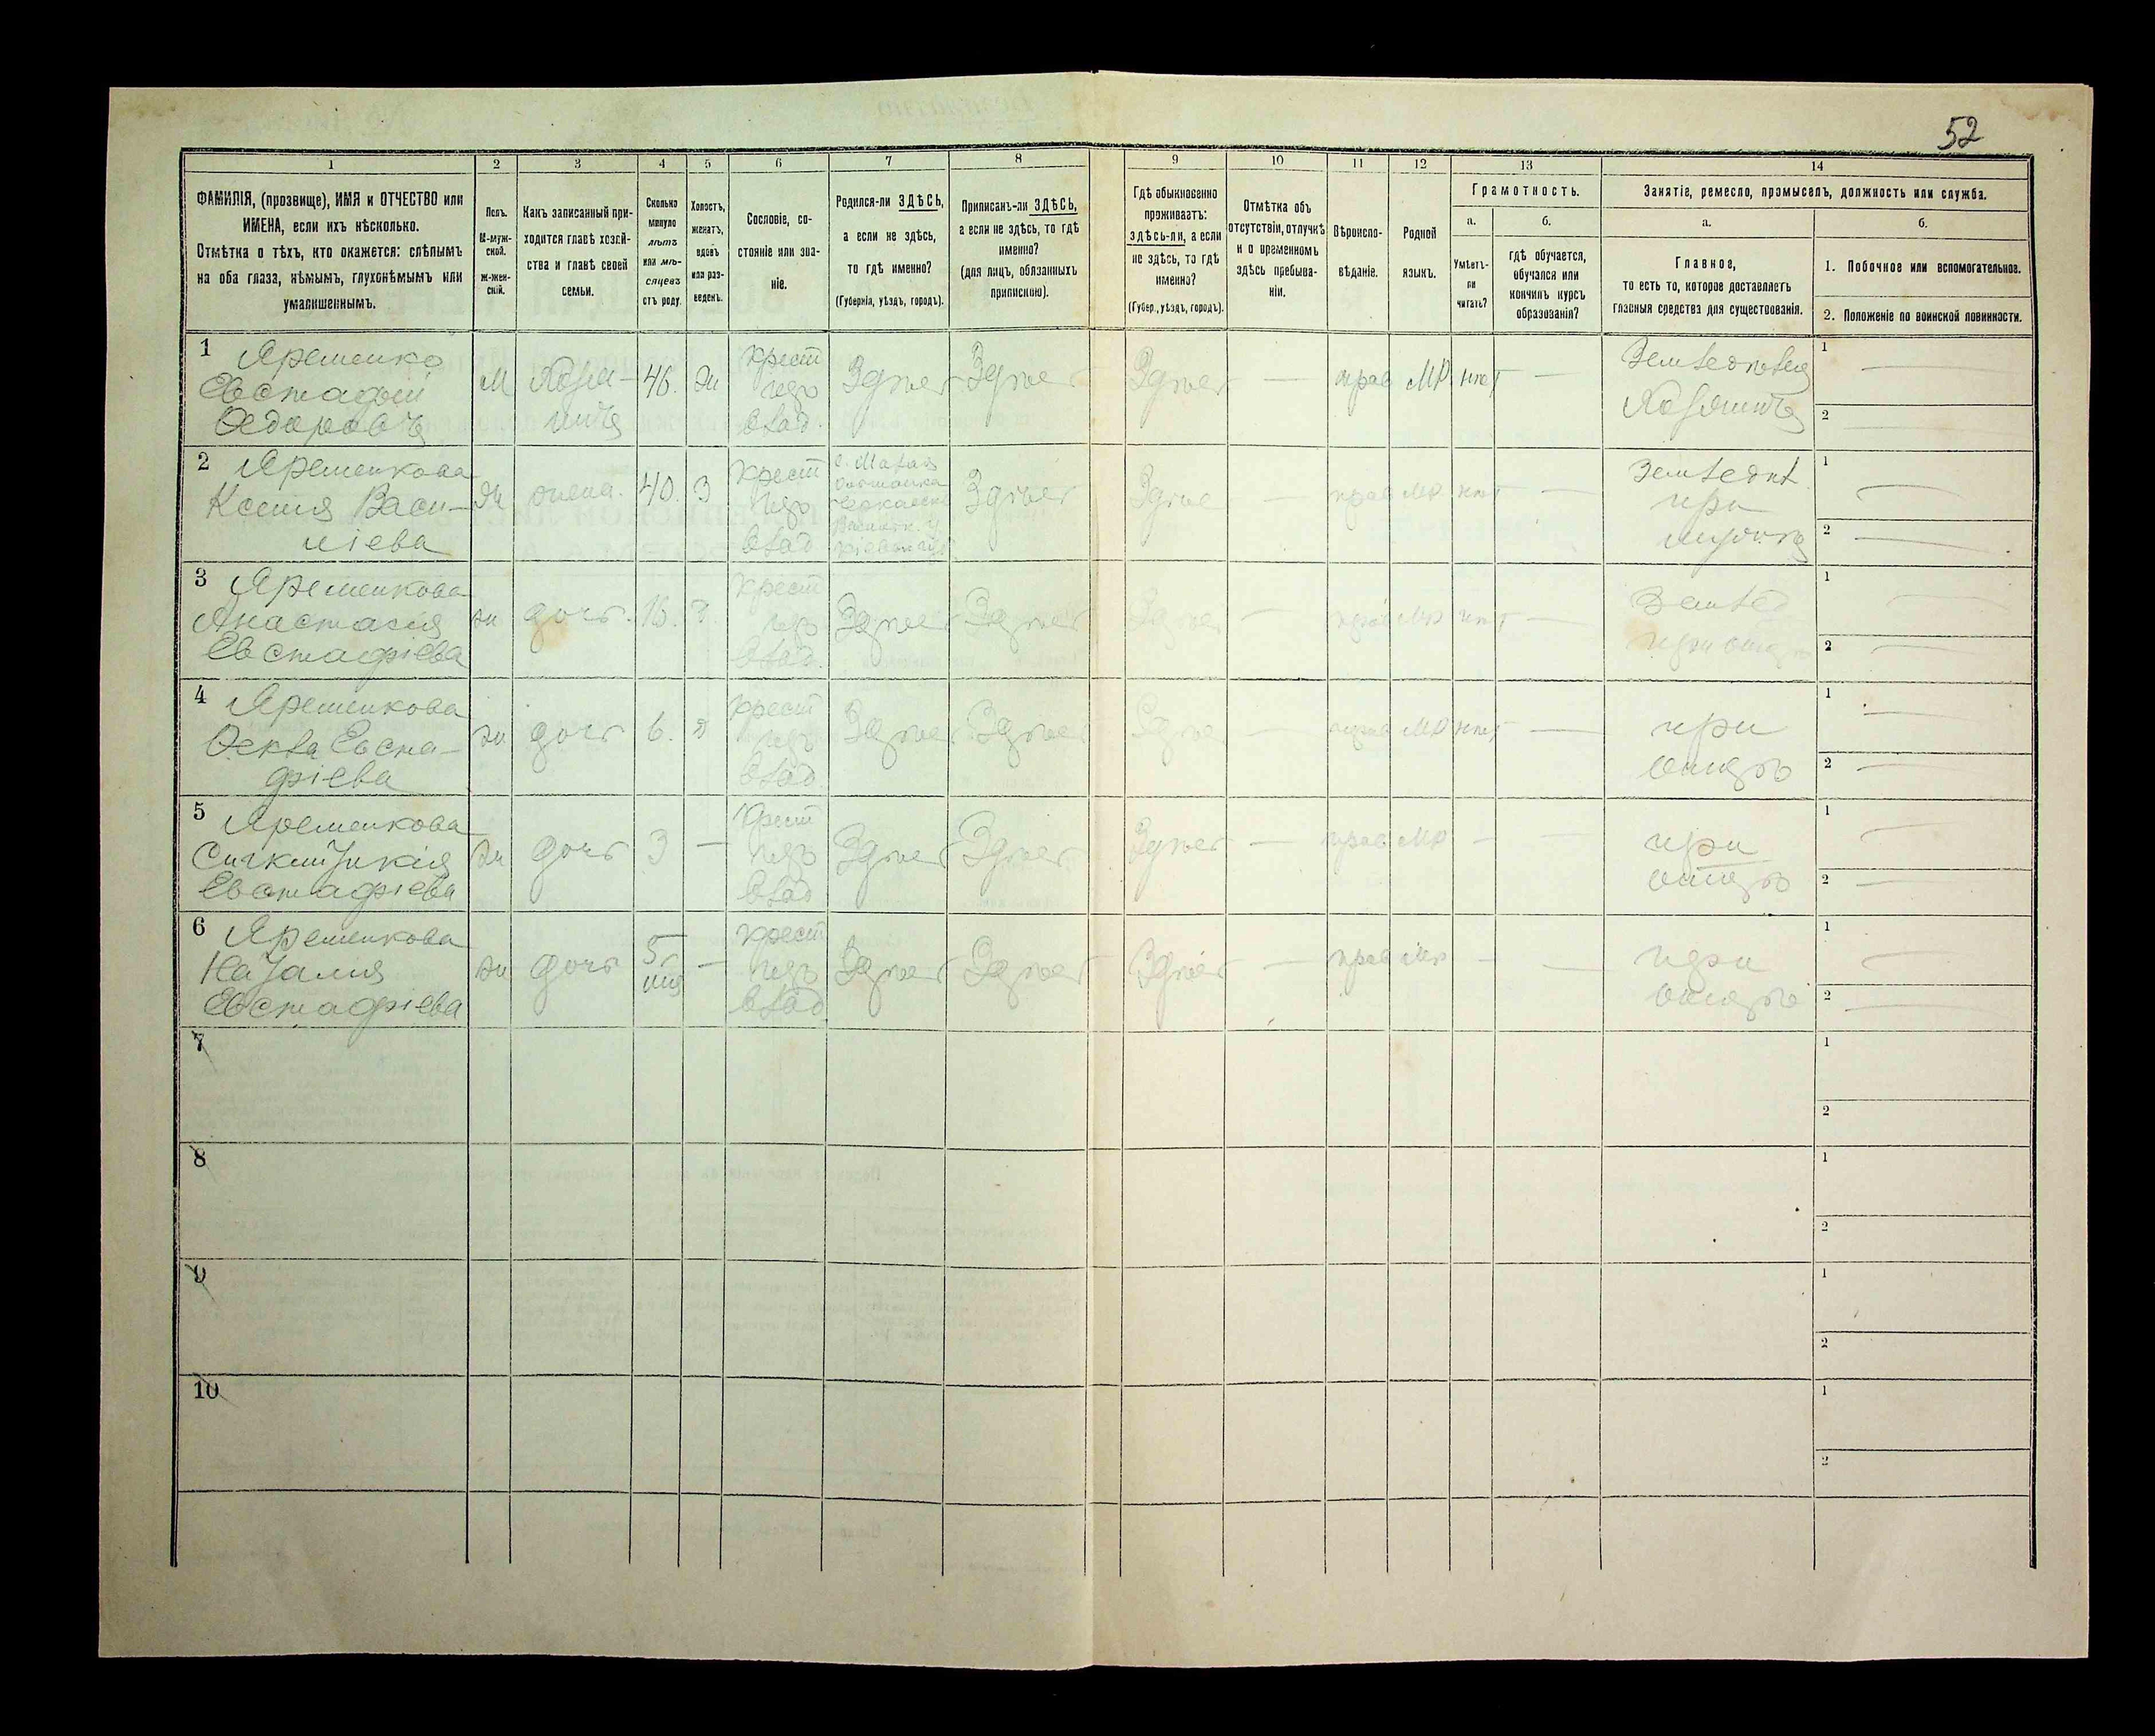 52
1 2 3 4 5 6 7 8 9 10 11 12 13 14
ФАМИЛІЯ, (прозвище), ИМЯ и ОТЧЕСТВО или
ИМЕНА, если ихъ нѣсколько.
Отмѣтка о тѣхъ, кто окажется: слѣпымъ
на оба глаза, нѣмымъ, глухонѣмымъ или
умалишеннымъ.
Полъ.
М-муж-
ской.
Ж-жен-
скій.
Какъ записанный при-
ходится главѣ хозяй-
ства и главѣ своей
семьи.
Сколько
минуло
лѣтъ
или мѣ-
сяцевъ
отъ роду.
Холостъ,
женатъ,
вдовъ
или раз-
веденъ.
Сословіе, со-
стояніе или зва-
ніе.
Родился-ли ЗДѢСЬ,
а если не здѣсь,
то гдѣ именно?
(Губернія, уѣздъ, городъ).
Приписанъ-ли ЗДѢСЬ,
а если не здѣсь, то гдѣ
именно?
(для лицъ, обязанныхъ
припискою).
Гдѣ обыкновенно
проживаетъ:
здѣсь-ли, а если
не здѣсь, то гдѣ
именно?
(Губер., уѣздъ, городъ).
Отмѣтка объ
отсутствіи, отлучкѣ
и о временномъ
здѣсь пребыва-
ніи.
Вѣроиспо-
вѣданіе.
Родной
языкъ.
Грамотность.
а.
Умѣетъ-
ли
читать?
б.
гдѣ обучается,
обучался или
кончилъ курсъ
образованія?
Занятіе, ремесло, промыселъ, должность или служба.
а.
Главное,
то есть то, которое доставляетъ
главныя средства для существованія.
б.
1. Побочное или вспомогательное.
2. Положеніе по воинской повинности.
1 Яременко
Евстафій
Федоровъ
М
46.
ж
крест
влад.
Здѣсь
Здѣсь
Здѣсь
—
прав
МР
нѣт
—
1 —
2 —
2 Яременкова
Ксенія Васи-
ліева
ж
жена.
40.
З
крест
влад
Здѣсь
Здѣс
—
прав
МР
нѣт
—
Земледѣл.
при
1 —
2 —
3 Яременкова
Анастасія
Евстафіева
ж
дочь.
16.
крест
влад.
Здѣсь
Здѣсь
Здѣсь
—
прав
МР
нѣт
—
Землед
при отцѣ
1 —
2 —
4 Яременкова
Фекла Евста-
фіева
ж
дочь
6.
крест
влад
Здѣсь
Здѣсь
Здѣсь
—
прав
МР
нѣт
—
при
отцѣ
1 —
2 —
5 Яременкова
Евстафіева
ж
дочь
3
—
крест
влад
Здѣсь
Здѣсь
Здѣсь
—
прав
МР
—
—
при
отцѣ
1 —
2 —
6 Яременкова
Наталія
Евстафіева
ж
дочь
5
—
крест
влад
Здѣсь
Здѣсь
Здѣсь
—
прав
Мр
—
—
при
отцѣ
1 —
2 —
7
1
2
8
1
2
9
1
2
10
1
2